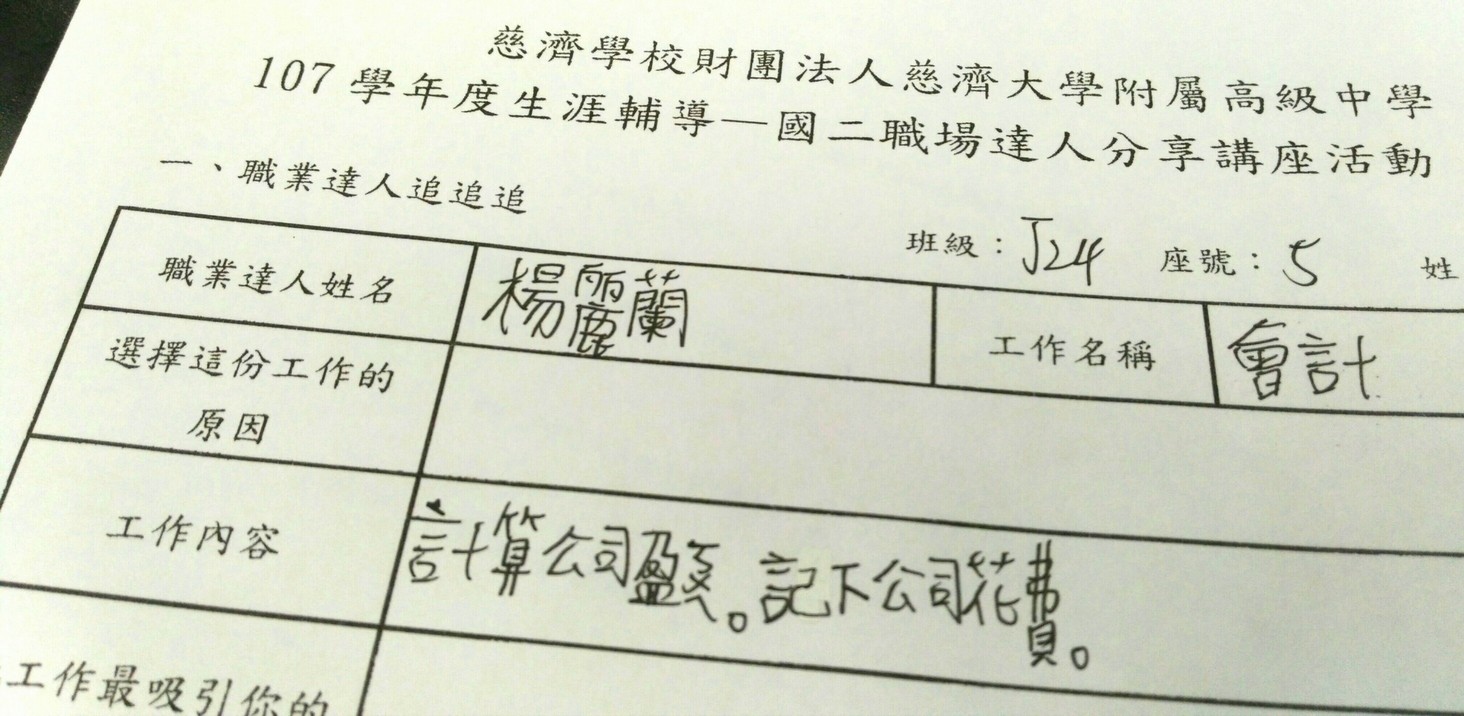 慈濟學校財團法人慈濟大學附屬高級中學
107 學年度生涯輔導—國二職場達人分享講座活動
一、職業達人追追追
班級：J24 座號：5 姓
職業達人姓名 楊麗蘭 工作名稱 會計
選擇這份工作的
原因
工作內容 計算公司盈。記下公司花費。
工作最吸引你的